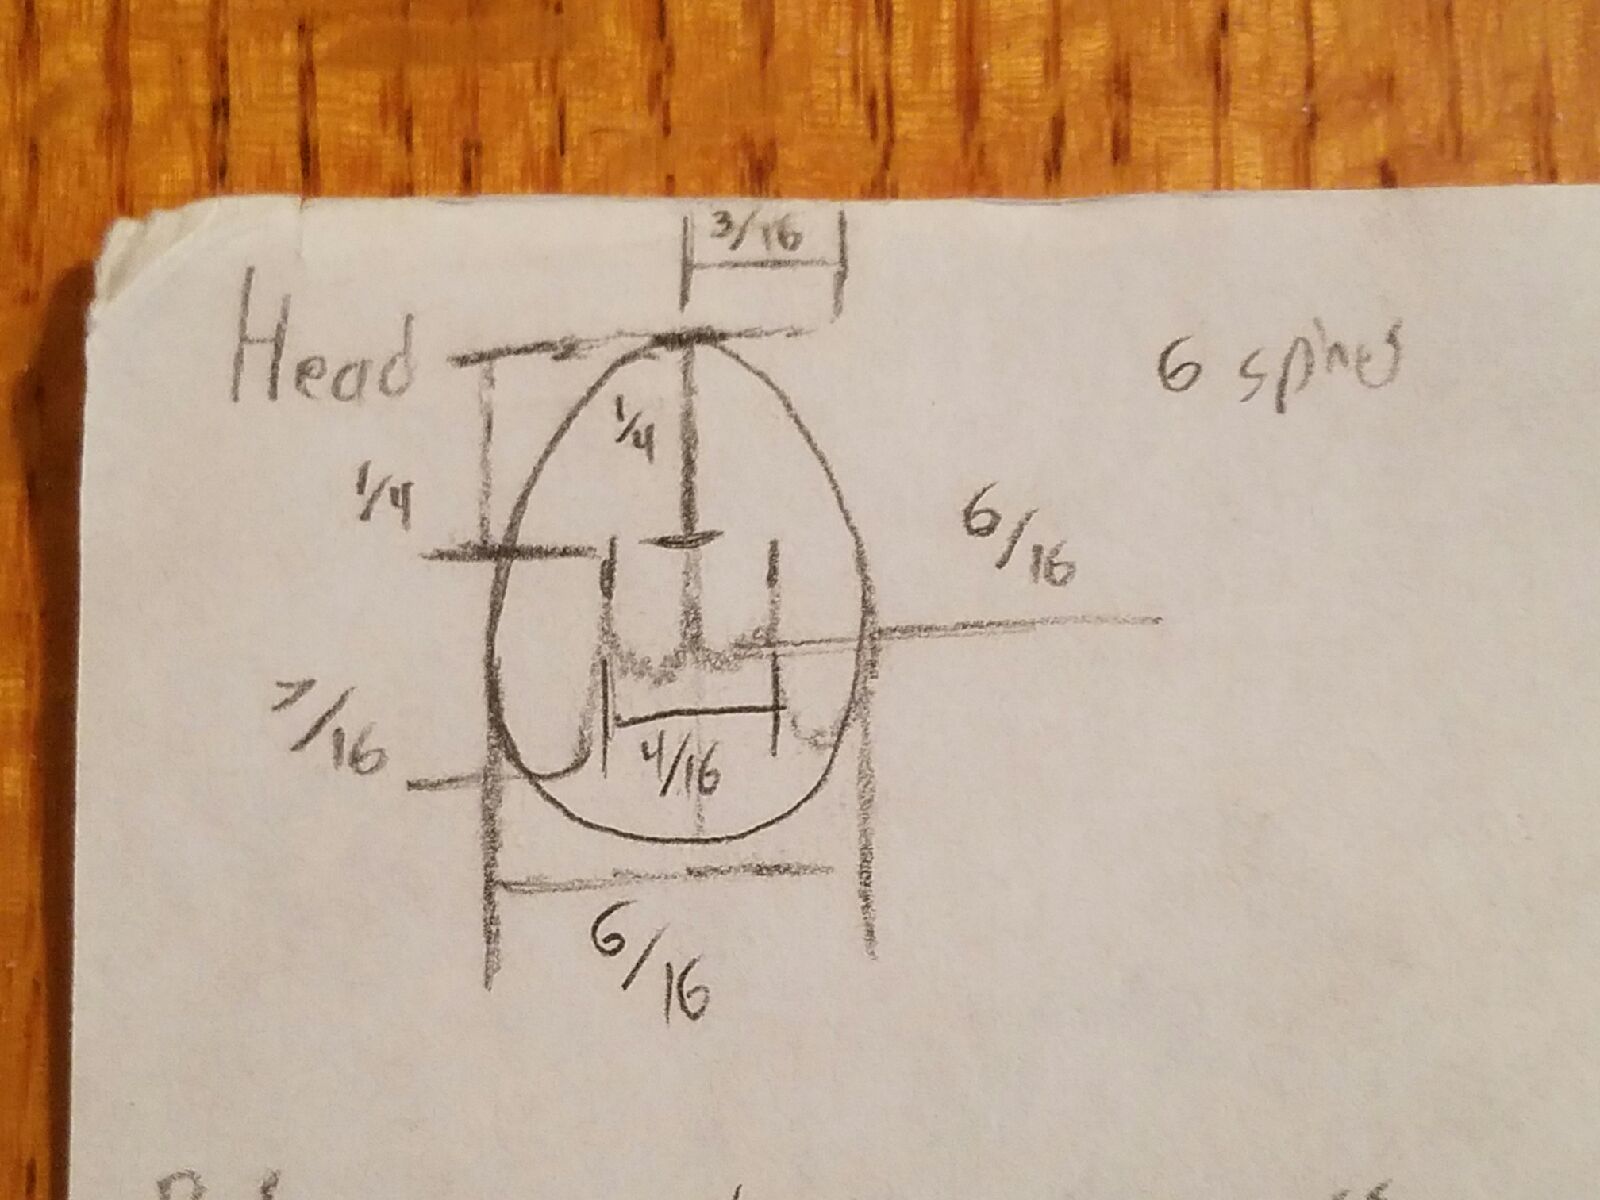 3/16
Head
6 spines
1/4
1/4
6/16
7/16
4/16
6/16